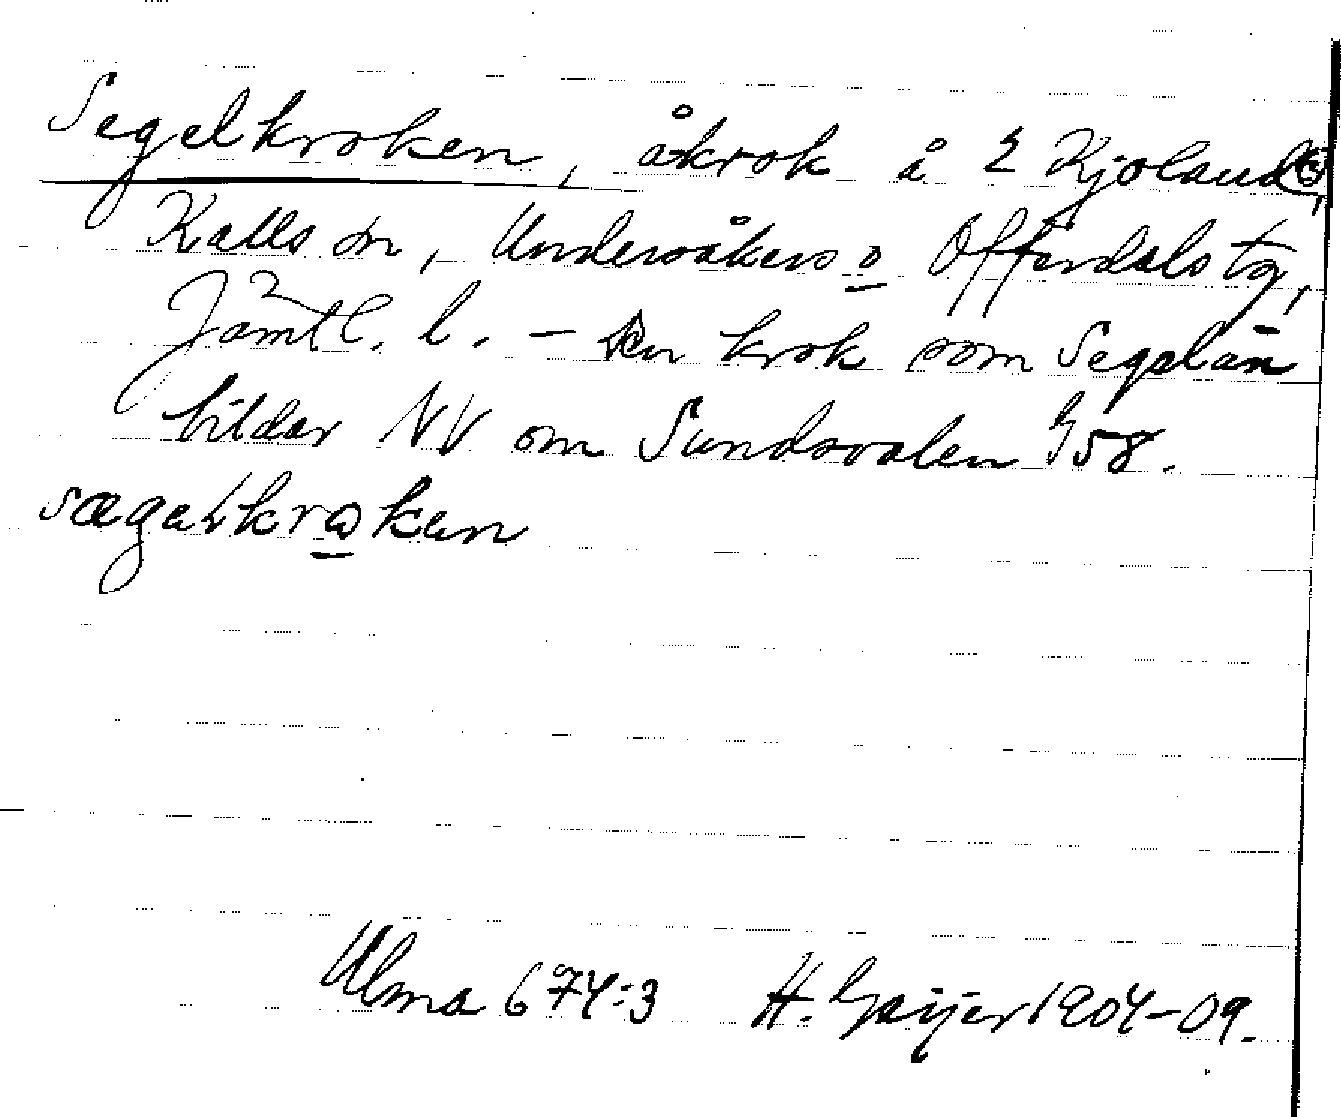 Segelkroken, åkrok å Kjoland
Kalls sn, Undersåkers o Offerdals tg,
Jämtl. l. – Den krok som Segelån
bildar NV om Sundsvalen G58.
sægalkrokan
Ulma 674:3 H. Geijer 1904–09.